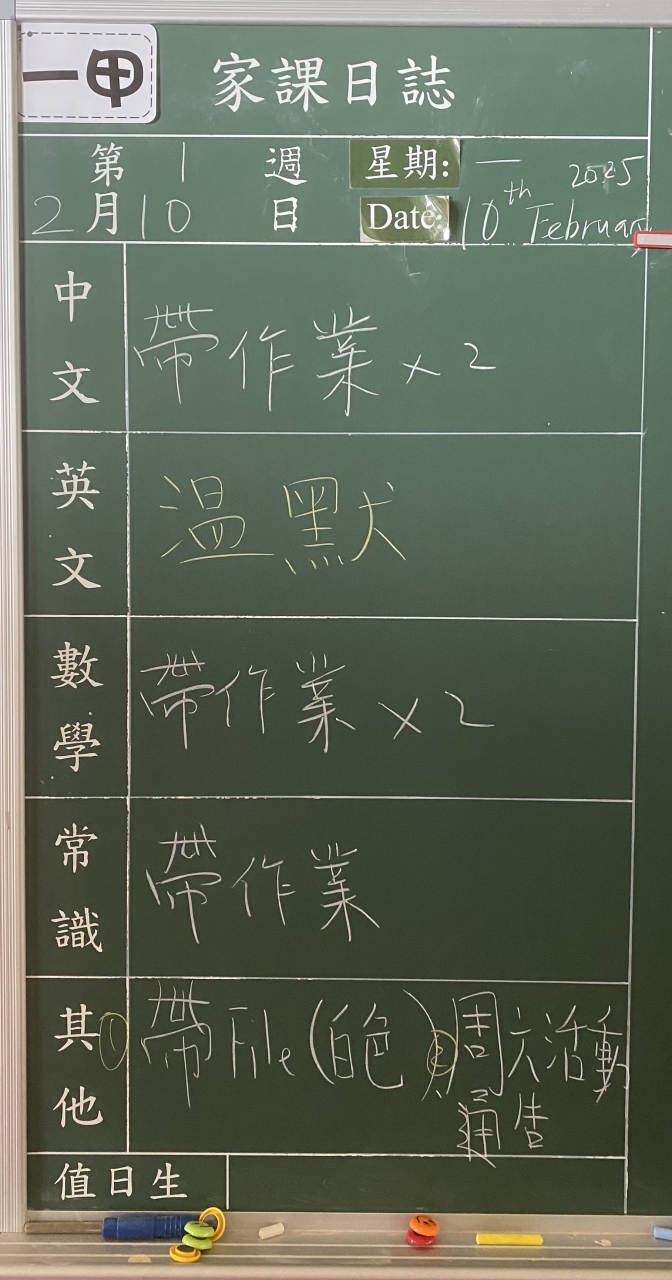 一甲 家課日誌
第 1 週 星期: 一 2025
2月10日 Date: 10th February
中文 帶作業 x 2
英文 温默
數學 帶作業 x 2
常識 帶作業
其他 ① 帶File(白色) ② 周六活動
通告
值日生